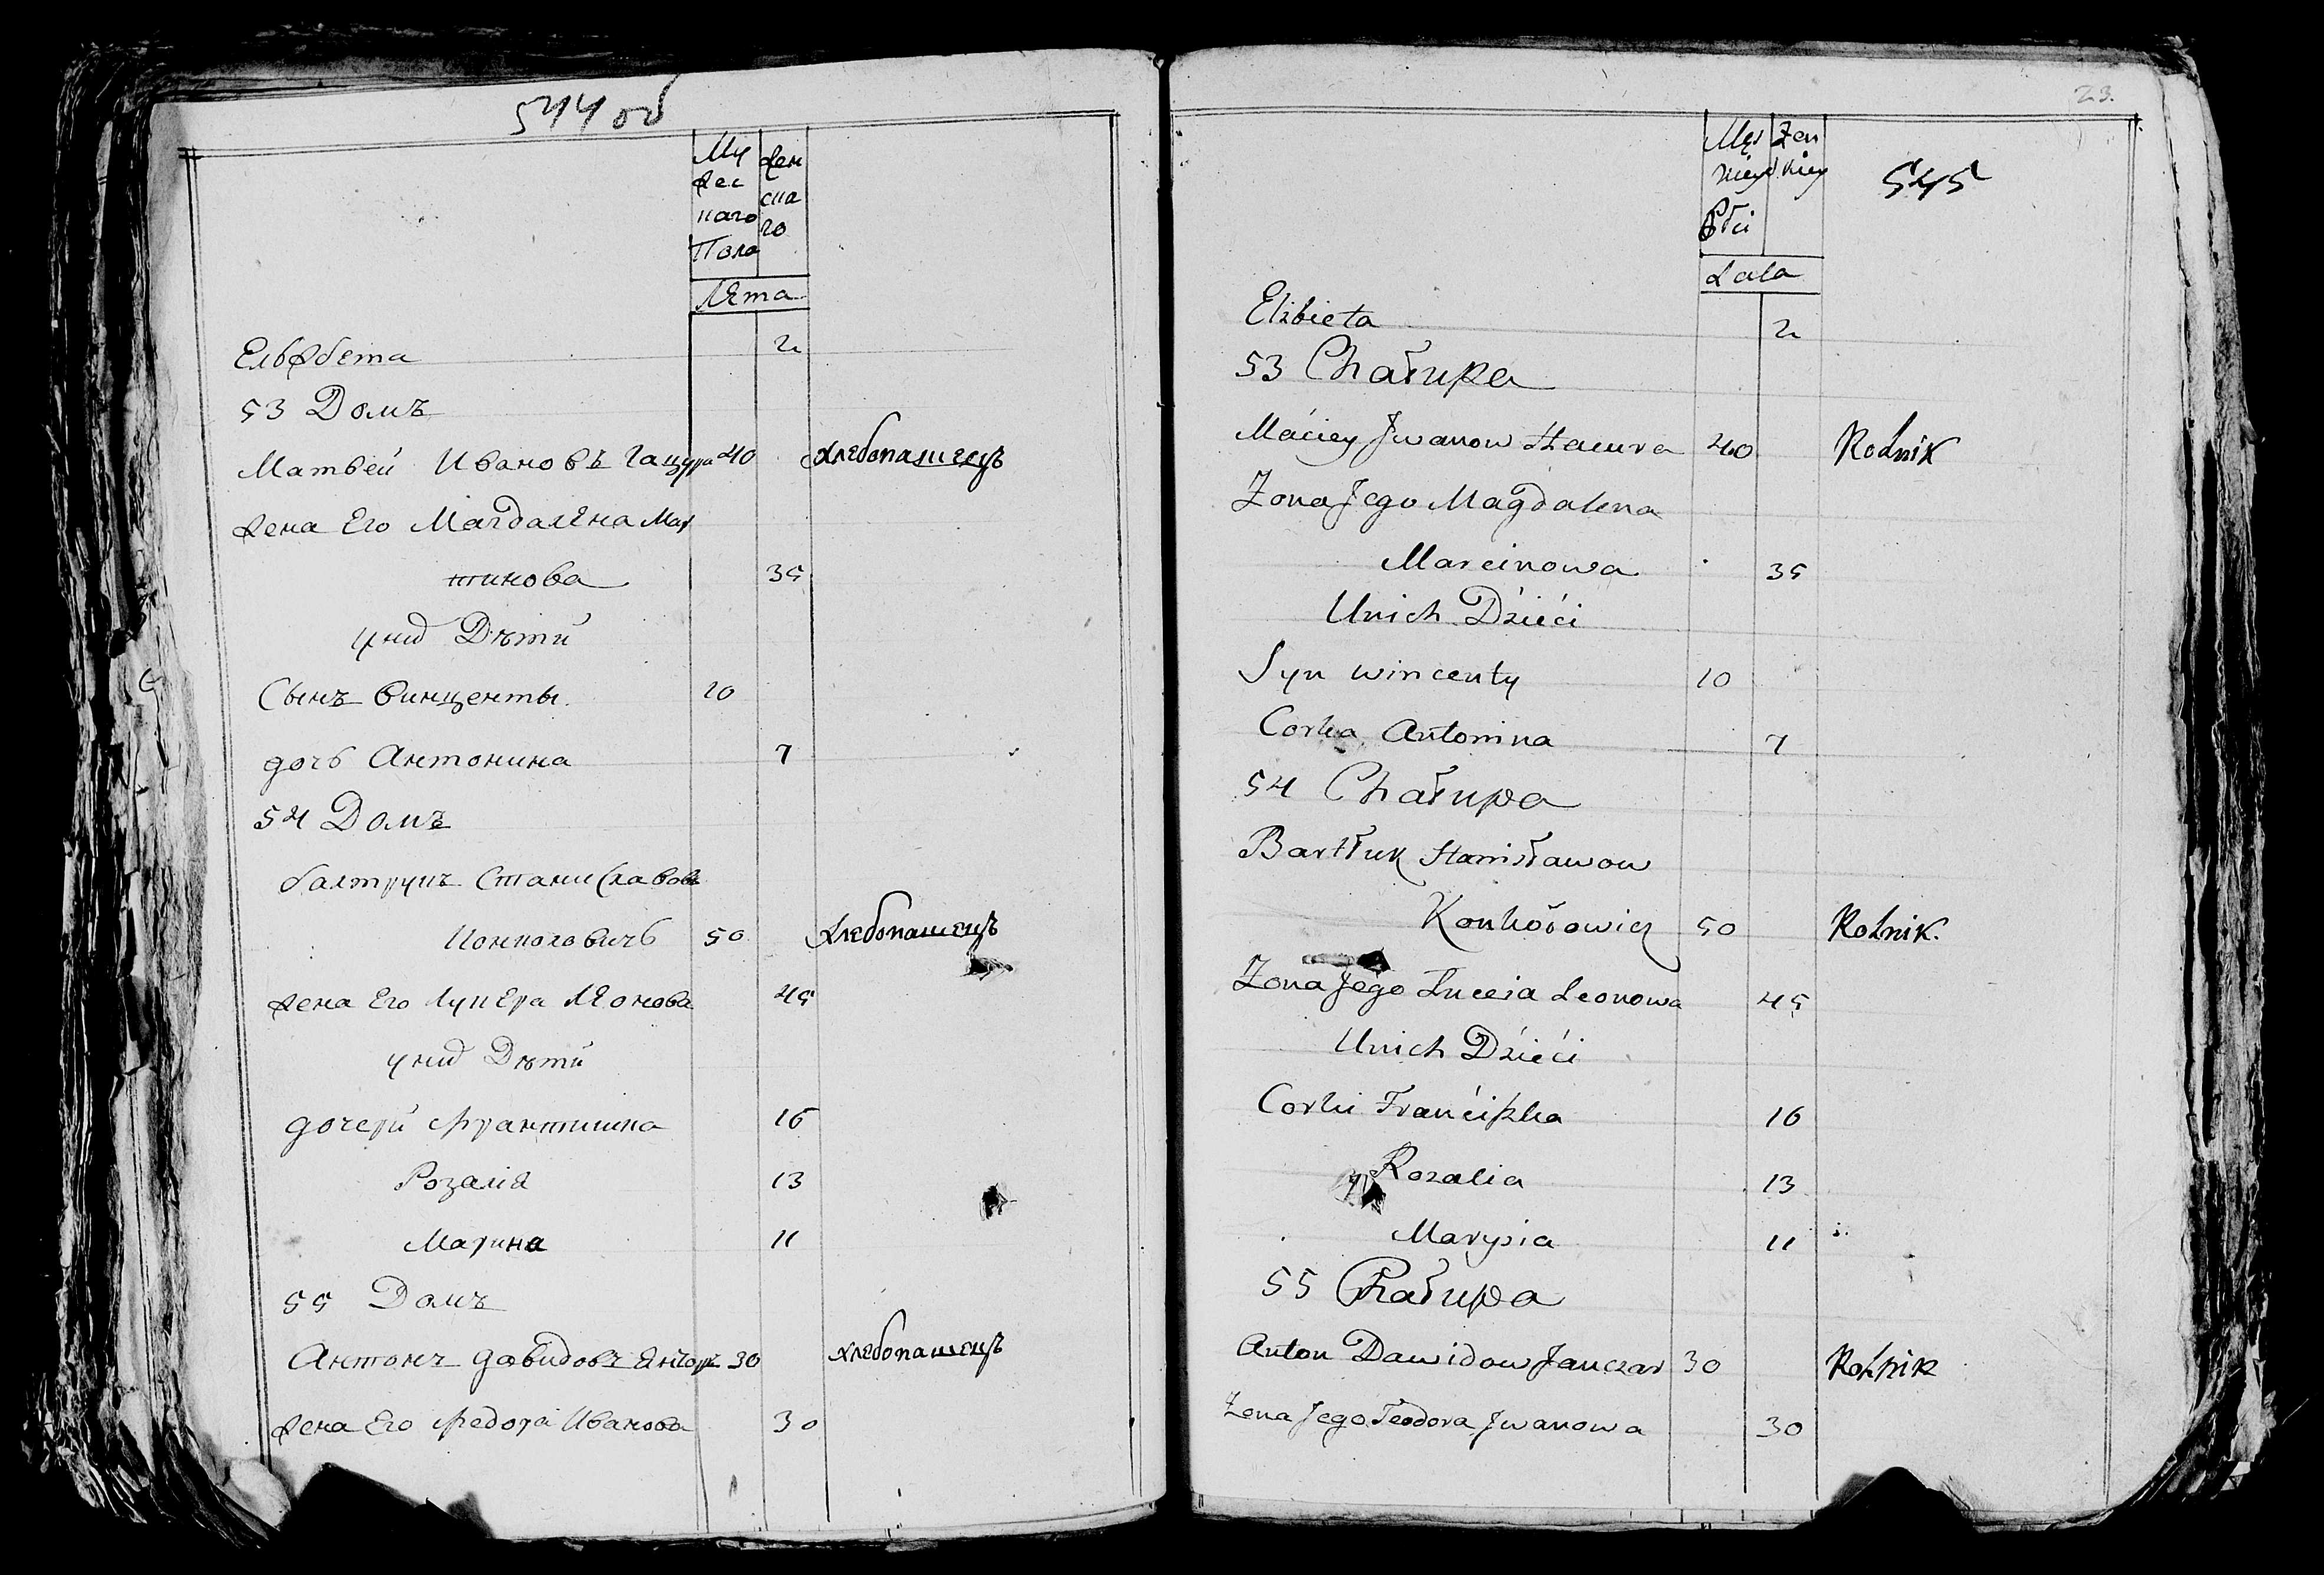 544 об
Му
жес
каго
Пола
Жен
ска
го
Лета
Ельжбета 2
53 Домъ
Матвей Ивановъ Гацура 40 хлебопашецъ
жена Его Магдалена Мар
тинова 35
у них Дети
Сынъ Винценты. 10
дочь Антонина 7
54 Домъ
балтрукъ Станиславовъ
50 хлебопашецъ
жена Его Лукера Леонова 45
у них Дети
дочери Франтишка 16
Розалiя 13
Марина 11
55 Домъ
Антонъ давидовъ 30 хлебопашецъ
жена Его Федора Иванова 30
23.
545
Męs
kiey
Płci
Żen
skiey
Lata
Elżbieta 2
53 Chałupa
Maciey Jwanow Hacura 40 Rolnik
Zona Jego Magdalena
Marcinowa 35
Unich Dzieći
Syn Wincenty 10
Corka Antonina 7
54 Chałupa
Bartłuk Stanisławow
Konkołowicz 50 Rolnik.
Zona Jego Łuceia Leonowa 45
Unich Dzieći
Corki Franciszka 16
Rozalia 13
Marysia 11
55 Chałupa
Anton Dawidow Janczar 30 Rolnik
Zona Jego Teodora Jwanowa 30